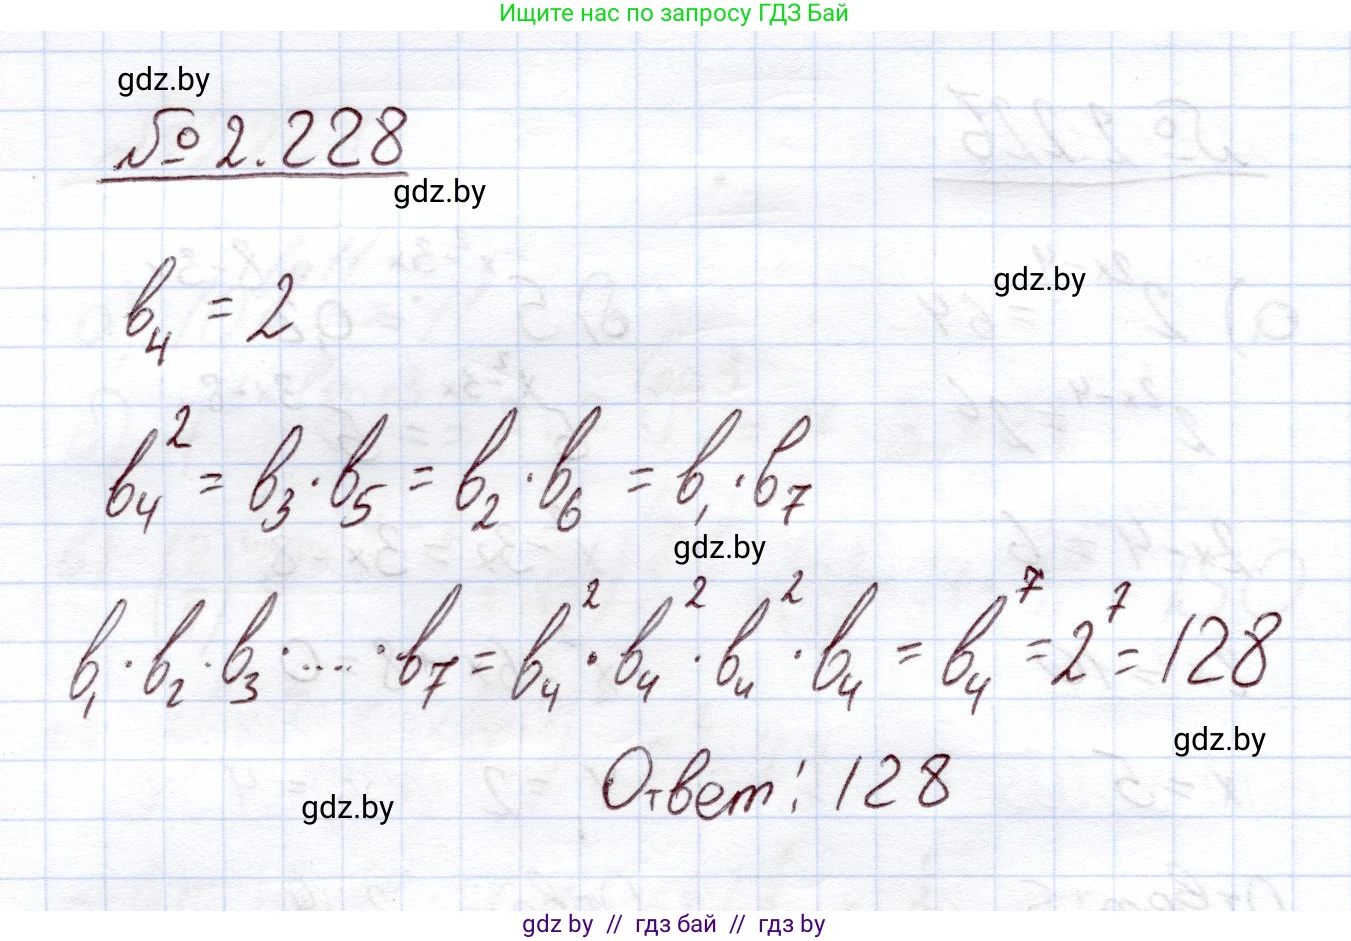 Ищите нас по запросу ГДЗ Бай
gdz.by
№ 2.228
gdz.by
gdz.by
b₄ = 2
b₄² = b₃ · b₅ = b₂ · b₆ = b₁ · b₇
gdz.by
b₁ · b₂ · b₃ · .... · b₇ = b₄² · b₄² · b₄² · b₄ = b₄⁷ = 2⁷ = 128
gdz.by
Ответ: 128
gdz.by
gdz.by // гдз бай // гдз by